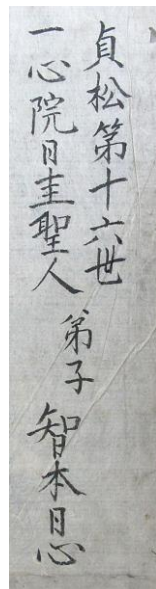 貞松第十六世
一心院日圭聖人 弟子 智本日心